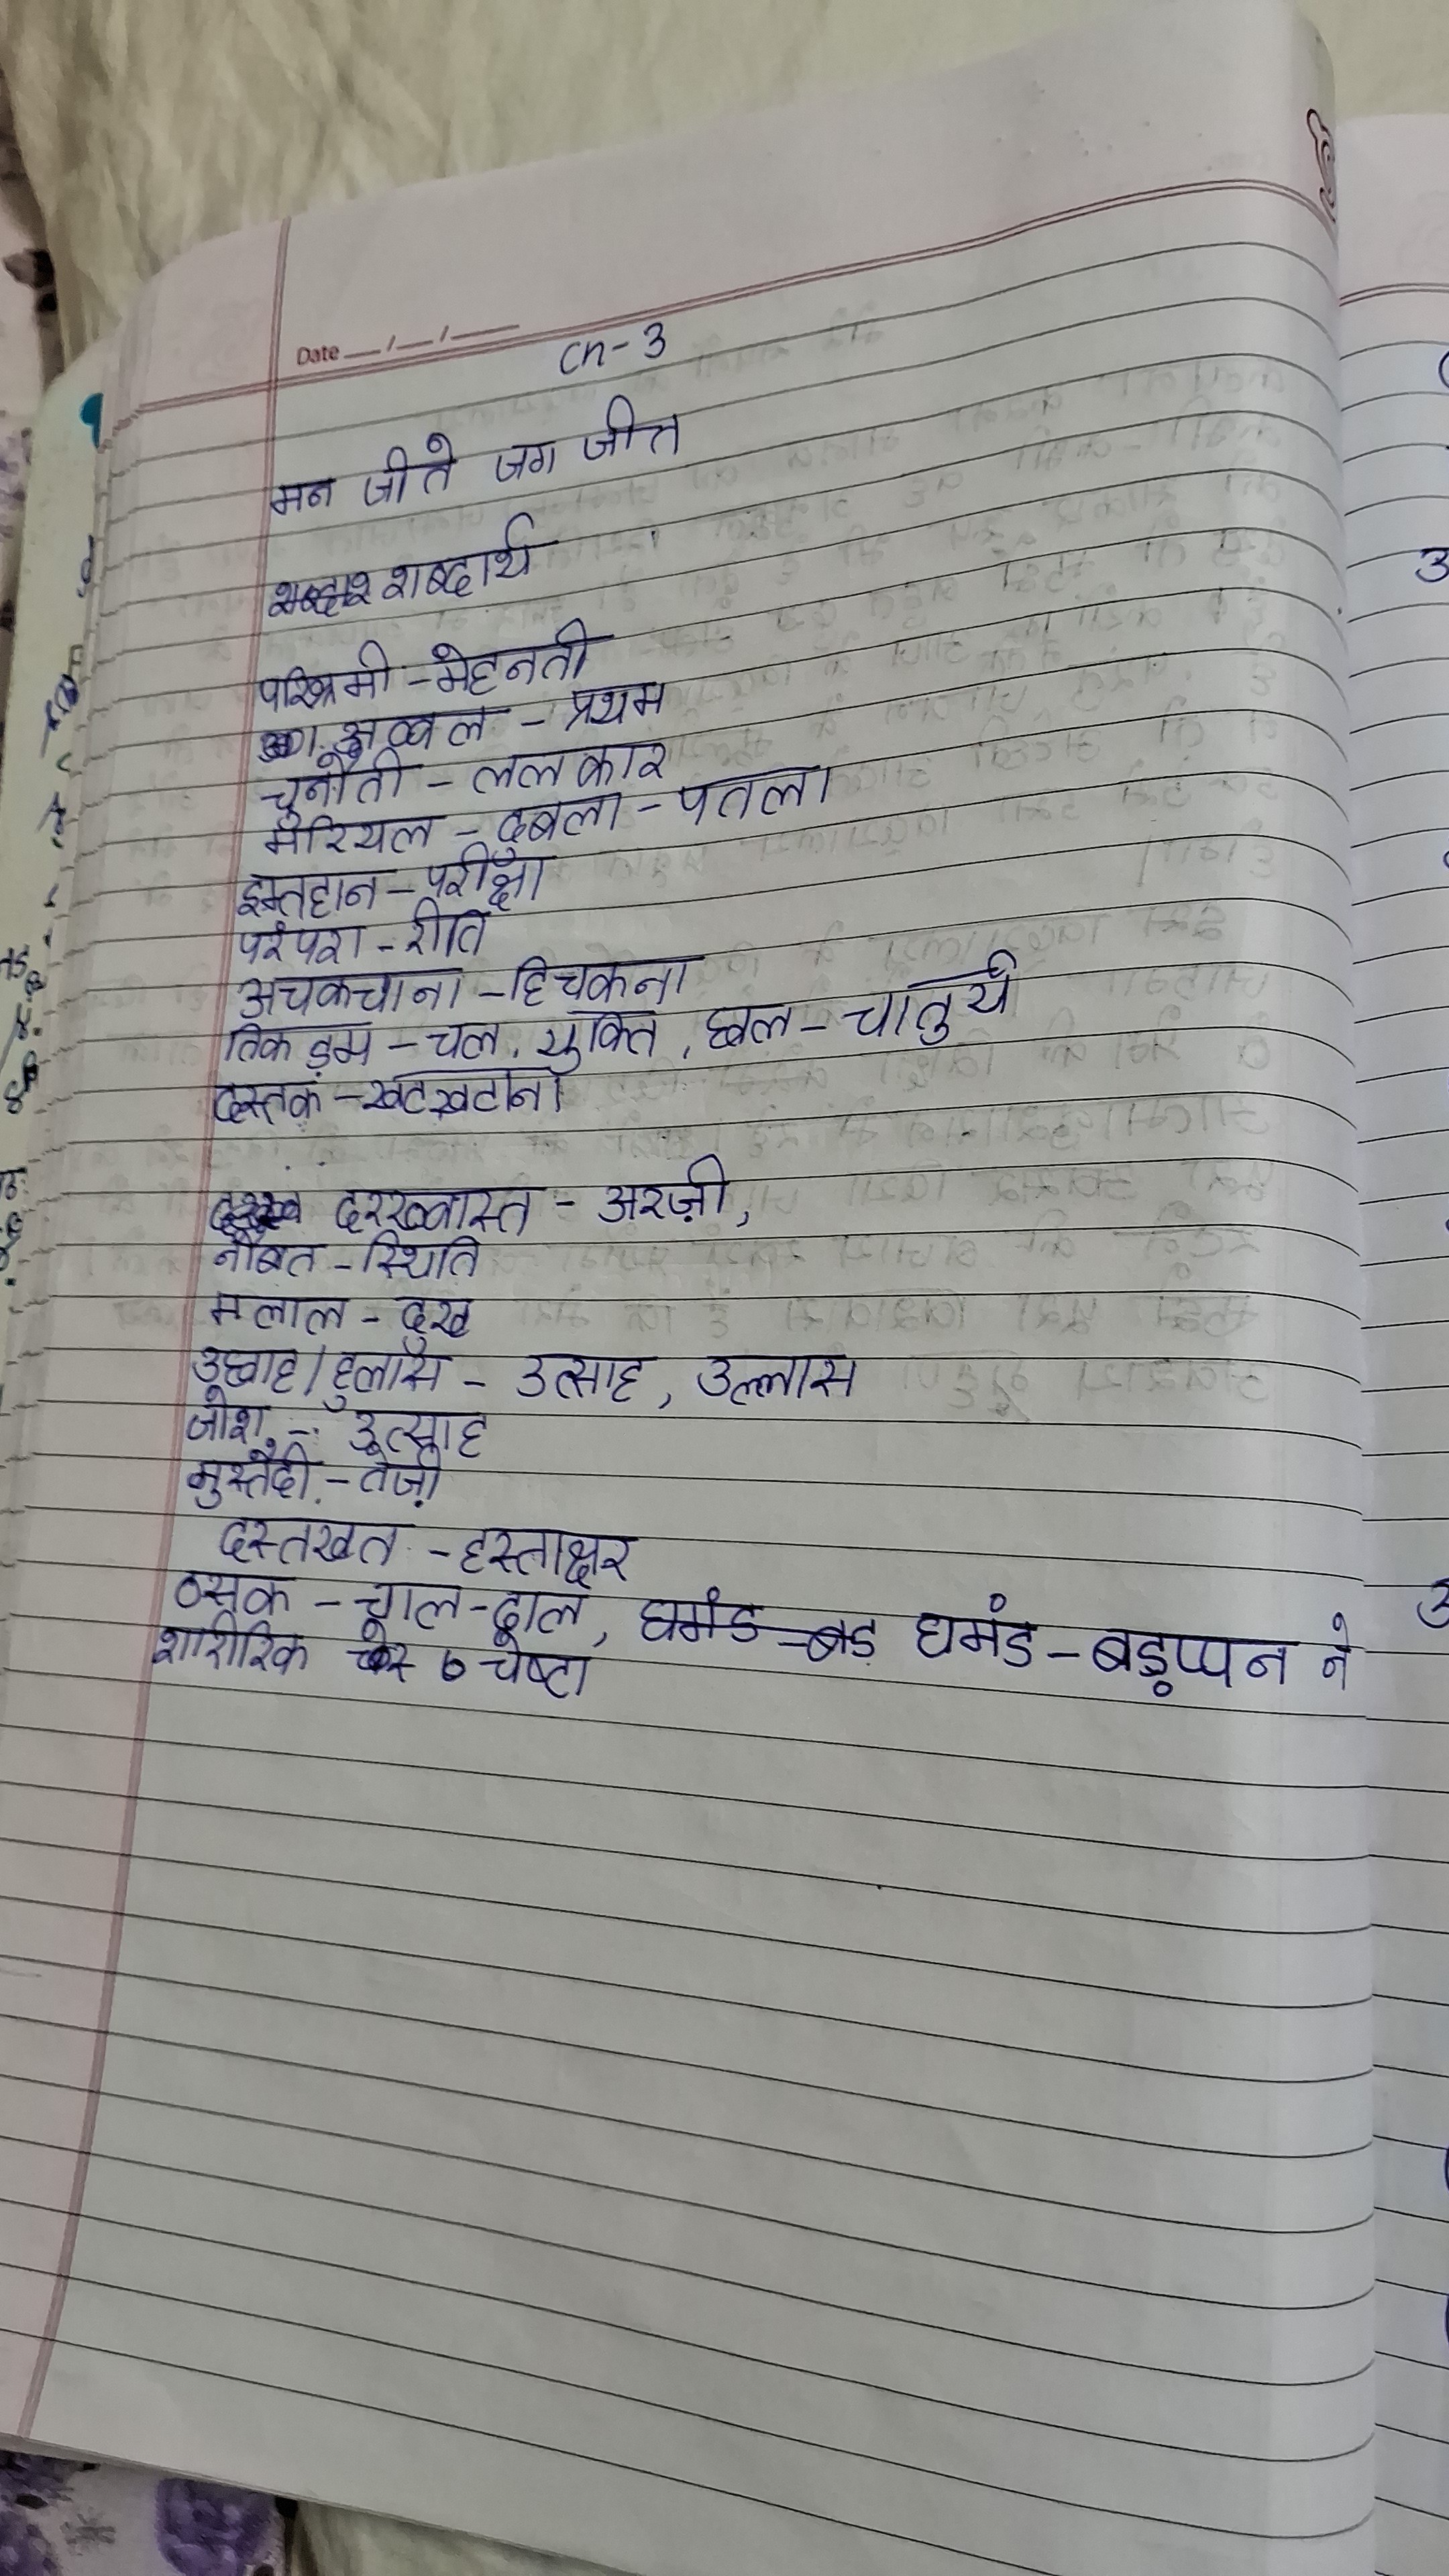 Date
Ch-3
मन जीते जग जीत
शब्दार्थ
परिश्रमी - मेहनती
अव्वल - प्रथम
चुनौती - ललकार
मरियल - दुबला - पतला
इम्तहान - परीक्षा
परंपरा - रीति
अचकचाना - हिचकना
तिकड़म - चल, युक्ति, छल - चातुर्य
दस्तक - खटखटाना
दरख्वास्त - अरज़ी,
नौबत - स्थिति
मलाल - दुख
उछाह / हुलास - उत्साह, उल्लास
जोश - उत्साह
मुस्तैदी - तेज़ी
दस्तखत - हस्ताक्षर
ठसक - चाल-ढाल, घमंड - बड़ घमंड - बड़प्पन ने
शारीरिक चेष्टा